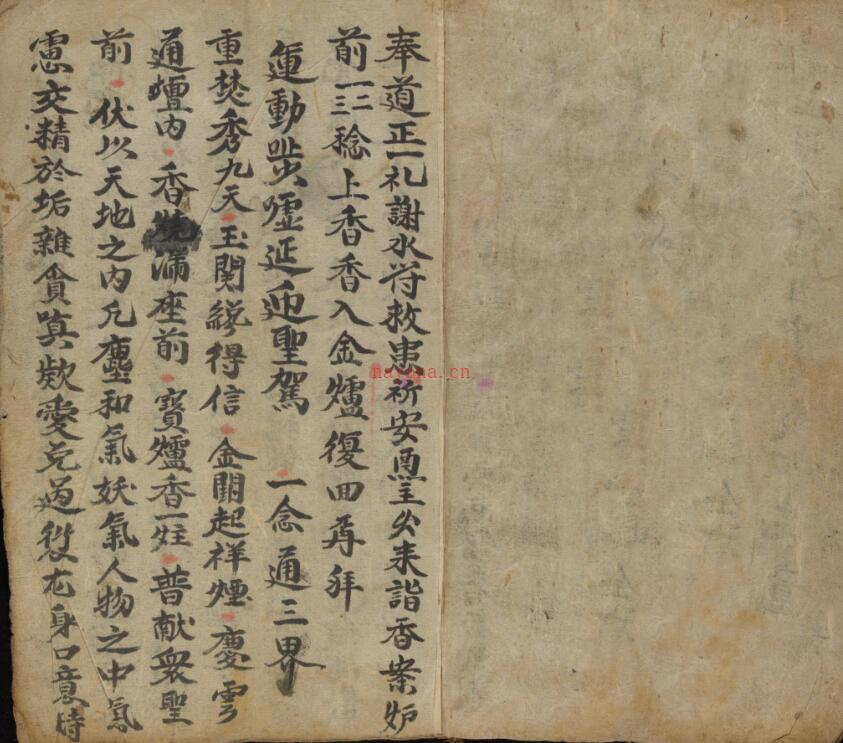 奉道正一礼謝水符救患祈安塁主众来詣香案炉
前一二三稔上香香入金爐復回再拜
運動吽噓延迎聖駕 一念通三界
重焚秀九天玉関総得信金闕起祥煙慶雲
通壇内香滿座前寶爐香一炷普献衆聖
前伏以天地之内凡塵和氣妖氣人物之中氣
慁交精於垢雜貪嗔欸愛克過役尤身口意時
nayona.cn